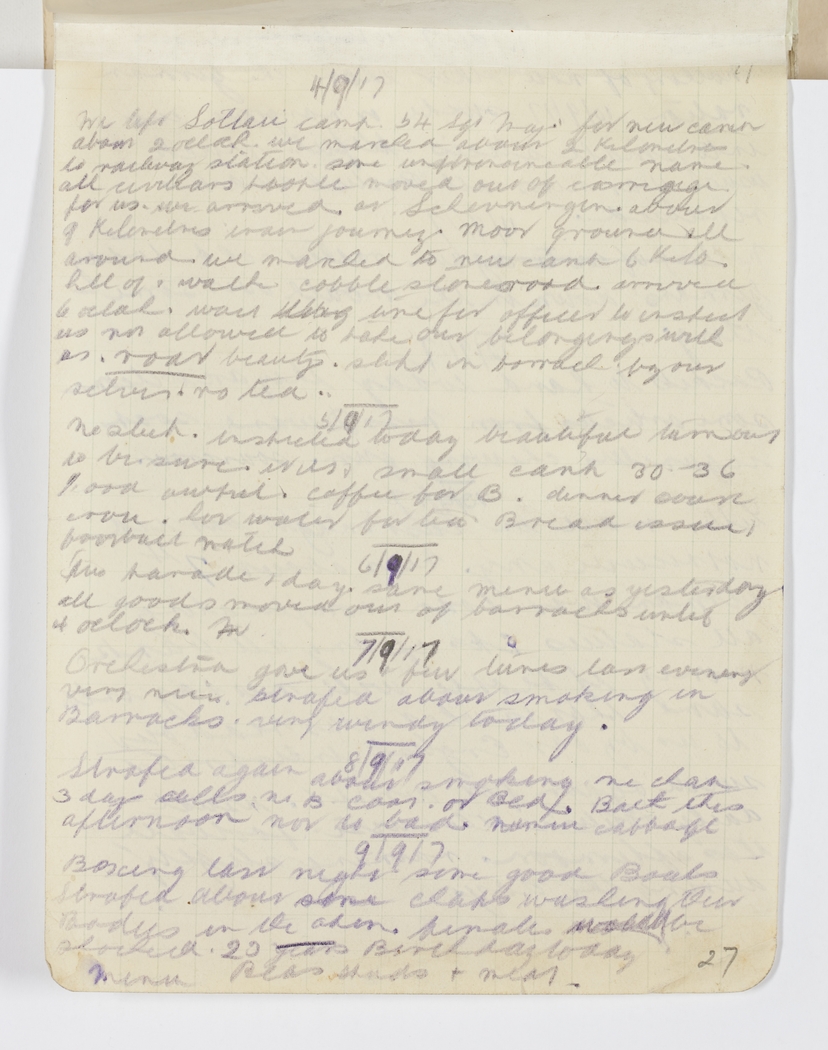 4/9/17
We left Soltau camp. 54 Sgt Maj. for new camp
about 2 oclock. we marched about 2 Kilometres
to railway station. some unpronounceable name.
all civilians people moved out of carriage
for us. we arrived. at about
9 Kilometres train journey. Moor ground all
around. we marched to new camp 6 Kilo.
hell of. walk cobblestone road. arrived
6 oclock. wait time for officer to inspect
us not allowed to take our belongings with
us. road beauty. slept in barrack. by our
selves. no tea..
5/9/17
No sleep. inspected today beautiful turn out
to be sure. small camp 30-36
Food awful. coffee for B. dinner
hot water for tea Bread issue,
football match
6/9/17
parade today. same menu as yesterday
all goods moved out of barracks until
4 oclock.
7/9/17
Orchestra gave us a few tunes last evening
very nice. strafed about smoking in
Barracks. very windy today.
8/9/17
Strafed again about smoking. one chap
3 day cells. no B coat. or Bed. Bath this
afternoon not to bad. menu cabbage
9/9/17.
Boxing last night some good Bouts
Strafed about some chaps washing their
Bodies in the open. females would be
shocked. 23 years Birthday today
Menu Beas spuds + meat.
27